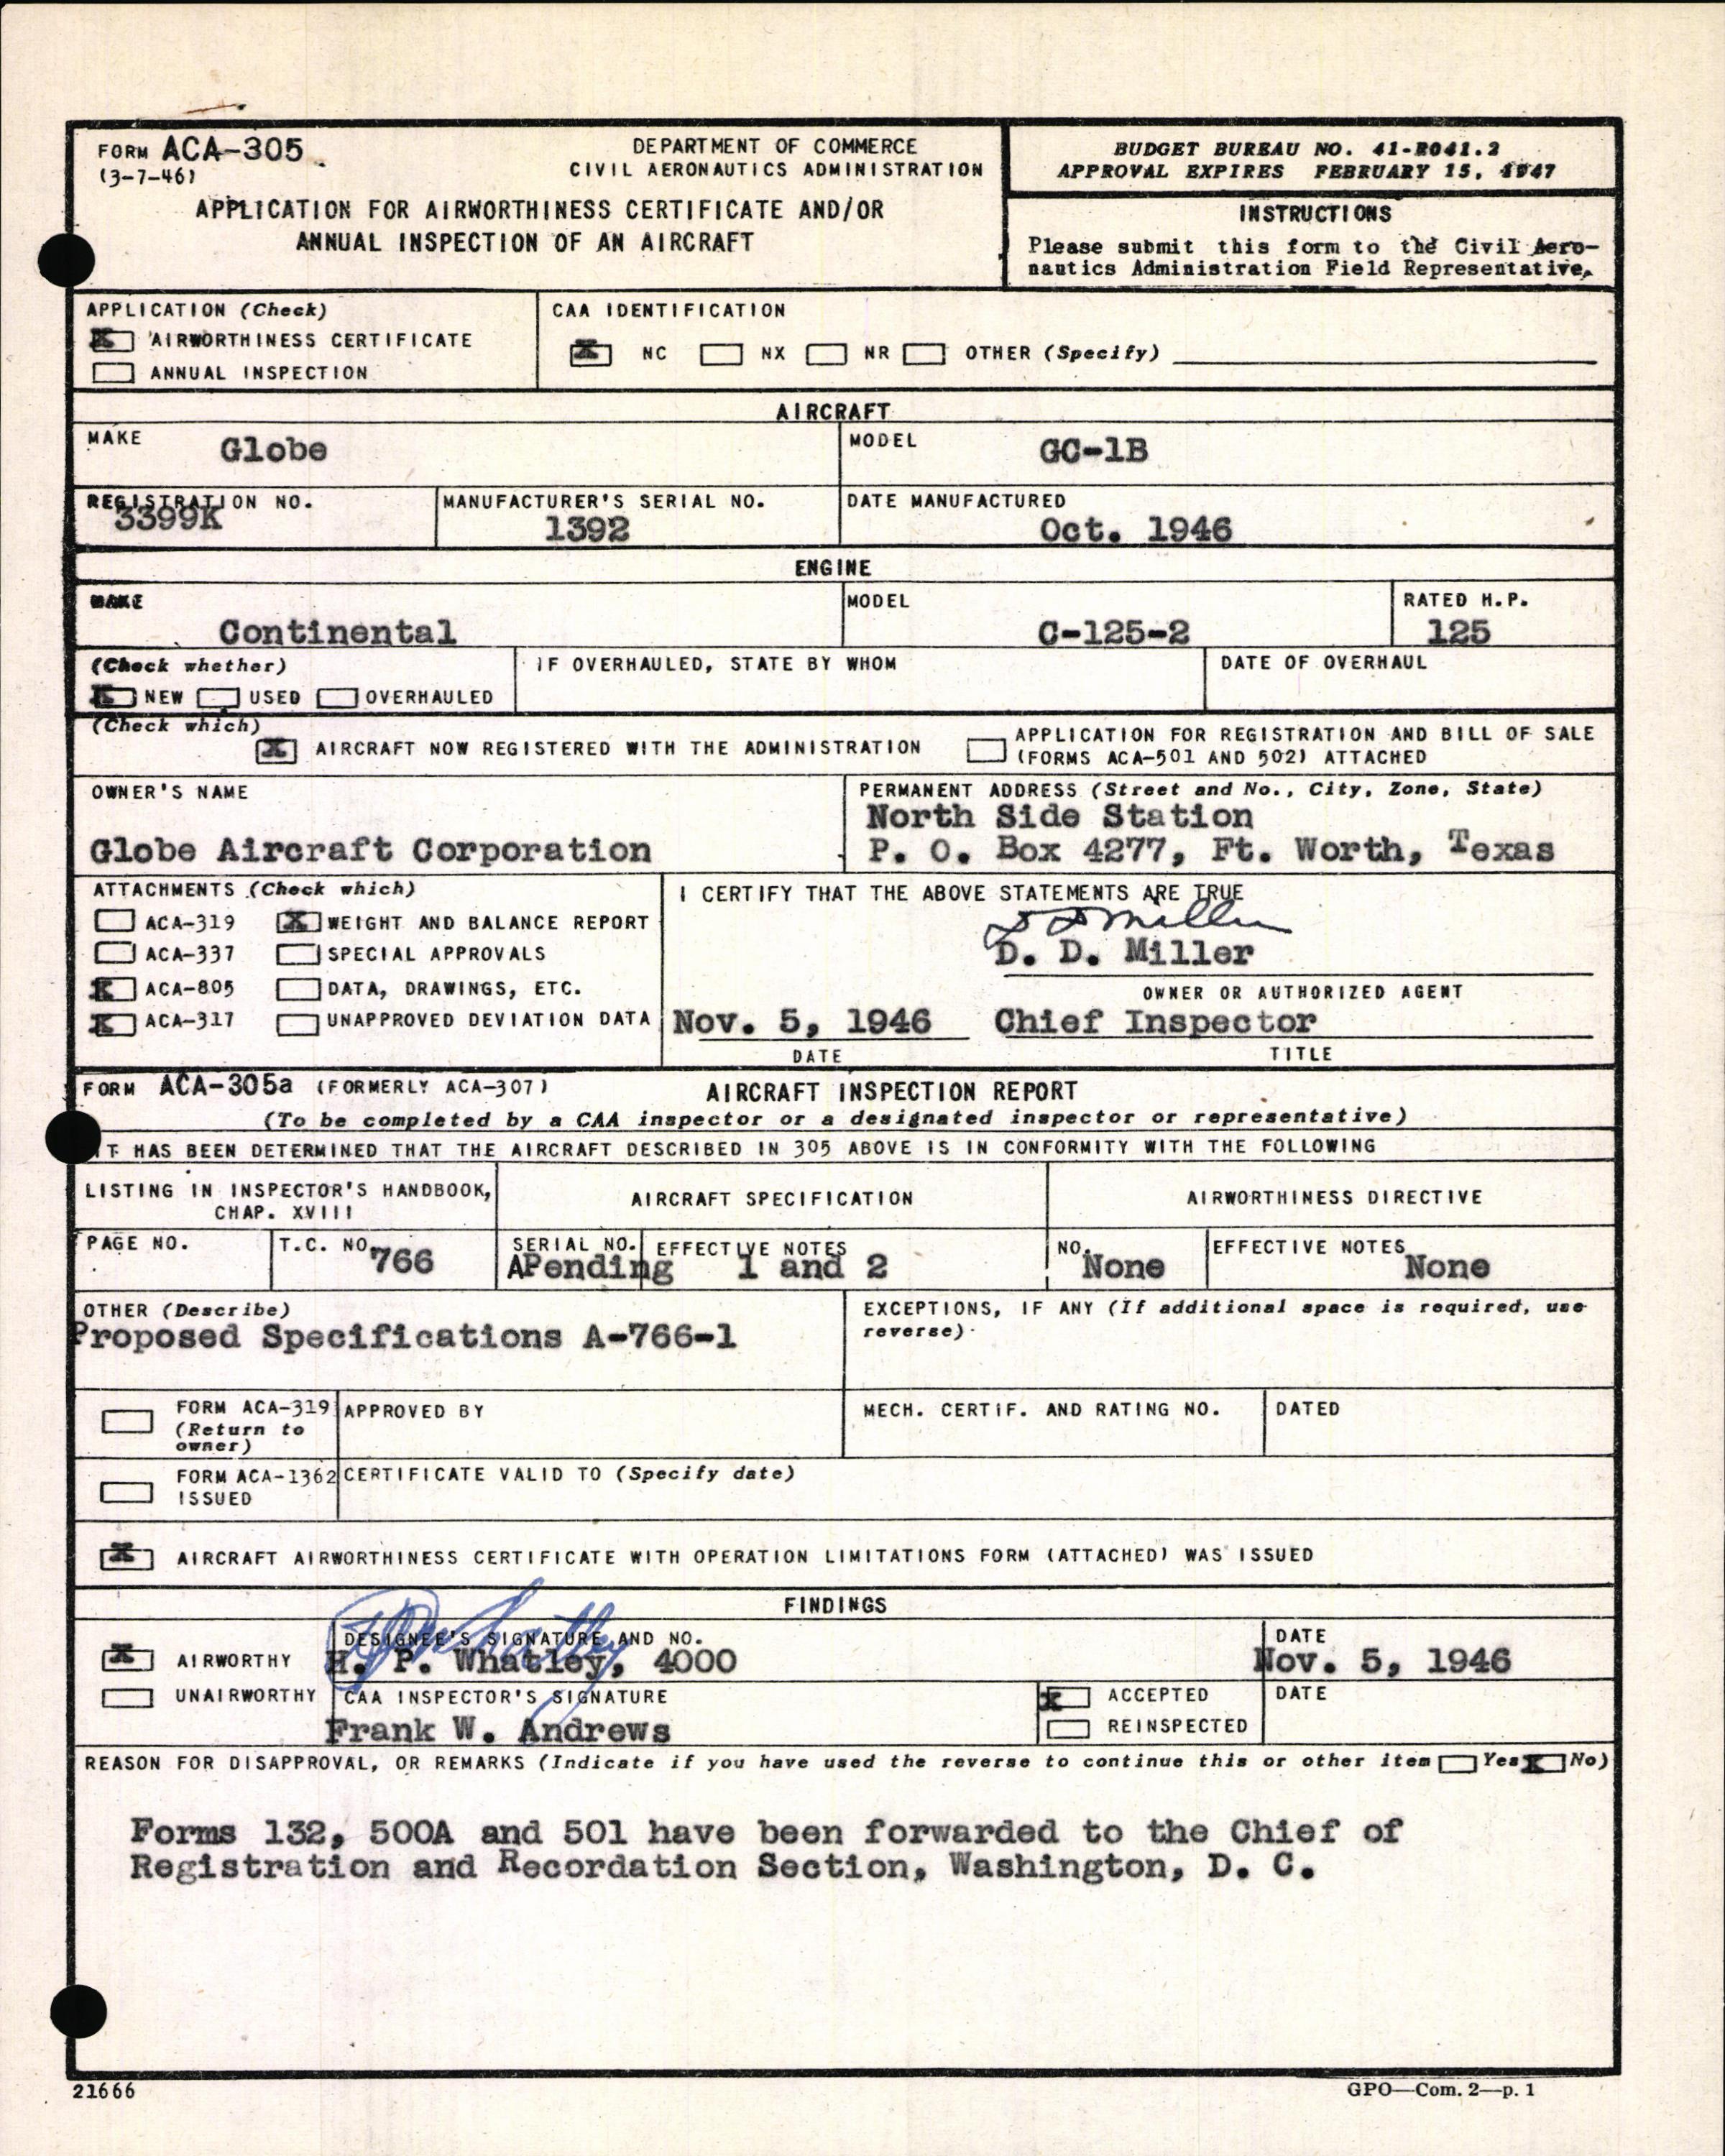 FORM ACA-305
(3-7-46)
DEPARTMENT OF COMMERCE
CIVIL AERONAUTICS ADMINISTRATION
APPLICATION FOR AIRWORTHINESS CERTIFICATE AND/OR
ANNUAL INSPECTION OF AN AIRCRAFT
BUDGET BUREAU NO. 41-R041.2
APPROVAL EXPIRES FEBRUARY 15, 1947
INSTRUCTIONS
Please submit this form to the Civil Aero-
nautics Administration Field Representative.
APPLICATION (Check)
X AIRWORTHINESS CERTIFICATE
ANNUAL INSPECTION
CAA IDENTIFICATION
X NC NX NR OTHER (Specify)
AIRCRAFT
MAKE Globe
MODEL GC-1B
REGISTRATION NO. 3399K
MANUFACTURER'S SERIAL NO. 1392
DATE MANUFACTURED Oct. 1946
ENGINE
MAKE Continental
MODEL C-125-2
RATED H.P. 125
(Check whether)
X NEW USED OVERHAULED
IF OVERHAULED, STATE BY WHOM
DATE OF OVERHAUL
(Check which)
X AIRCRAFT NOW REGISTERED WITH THE ADMINISTRATION
APPLICATION FOR REGISTRATION AND BILL OF SALE
(FORMS ACA-501 AND 502) ATTACHED
OWNER'S NAME
Globe Aircraft Corporation
PERMANENT ADDRESS (Street and No., City, Zone, State)
North Side Station
P. O. Box 4277, Ft. Worth, Texas
ATTACHMENTS (Check which)
ACA-319 X WEIGHT AND BALANCE REPORT
ACA-337 SPECIAL APPROVALS
X ACA-805 DATA, DRAWINGS, ETC.
X ACA-317 UNAPPROVED DEVIATION DATA
I CERTIFY THAT THE ABOVE STATEMENTS ARE TRUE
D D Miller
D. D. Miller
OWNER OR AUTHORIZED AGENT
Nov. 5, 1946 Chief Inspector
DATE TITLE
FORM ACA-305a (FORMERLY ACA-307) AIRCRAFT INSPECTION REPORT
(To be completed by a CAA inspector or a designated inspector or representative)
IT HAS BEEN DETERMINED THAT THE AIRCRAFT DESCRIBED IN 305 ABOVE IS IN CONFORMITY WITH THE FOLLOWING
LISTING IN INSPECTOR'S HANDBOOK,
CHAP. XVIII
AIRCRAFT SPECIFICATION
AIRWORTHINESS DIRECTIVE
PAGE NO.
T.C. NO. 766
SERIAL NO. APending
EFFECTIVE NOTES 1 and 2
NO. None
EFFECTIVE NOTES None
OTHER (Describe)
Proposed Specifications A-766-1
EXCEPTIONS, IF ANY (If additional space is required, use
reverse)
FORM ACA-319
(Return to
owner)
APPROVED BY
MECH. CERTIF. AND RATING NO.
DATED
FORM ACA-1362
ISSUED
CERTIFICATE VALID TO (Specify date)
X AIRCRAFT AIRWORTHINESS CERTIFICATE WITH OPERATION LIMITATIONS FORM (ATTACHED) WAS ISSUED
FINDINGS
X AIRWORTHY
UNAIRWORTHY
DESIGNEE'S SIGNATURE AND NO.
H. P. Whatley, 4000
DATE
Nov. 5, 1946
CAA INSPECTOR'S SIGNATURE
Frank W. Andrews
X ACCEPTED
REINSPECTED
DATE
REASON FOR DISAPPROVAL, OR REMARKS (Indicate if you have used the reverse to continue this or other item Yes X No)
Forms 132, 500A and 501 have been forwarded to the Chief of
Registration and Recordation Section, Washington, D. C.
21666
GPO—Com. 2—p. 1